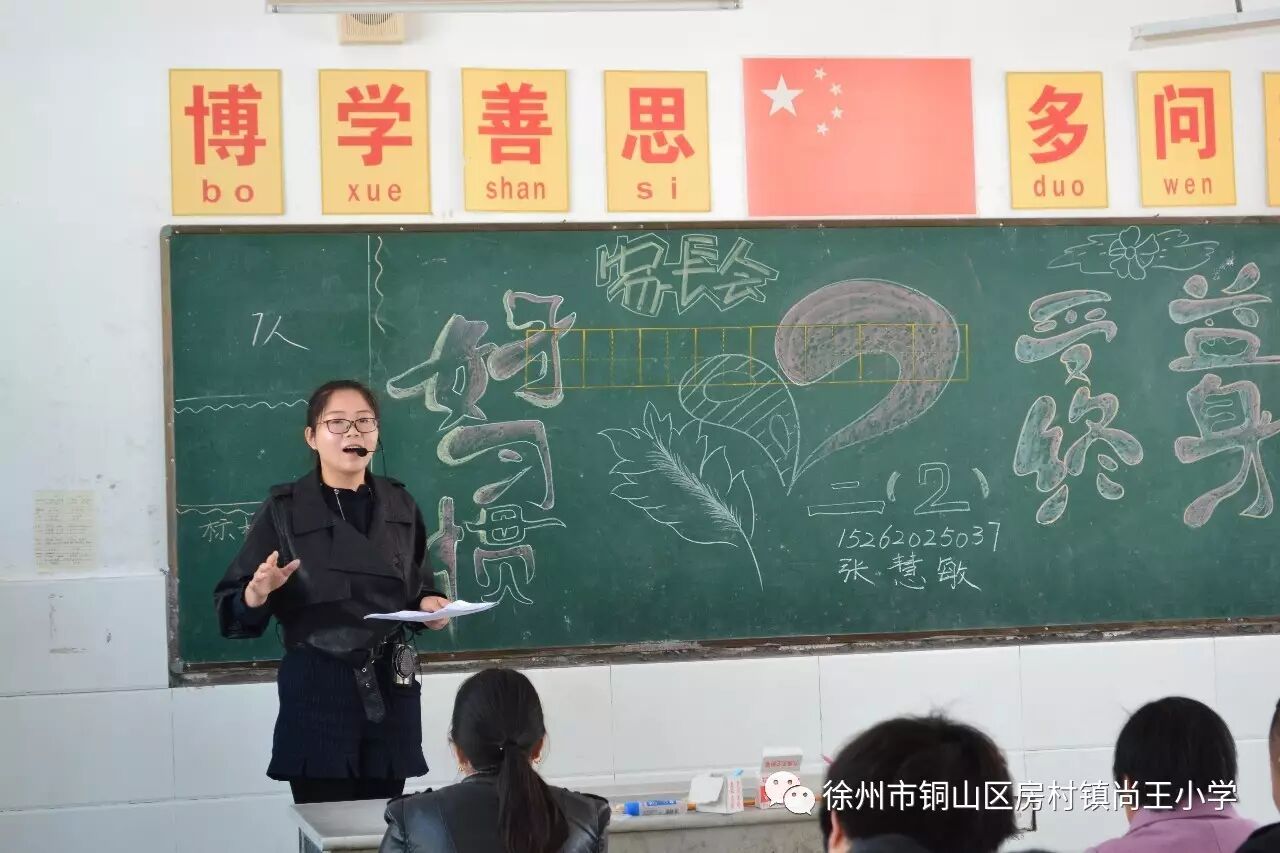 博 学 善 思 多 问
bo xue shan si duo wen
家长会
好习惯
受益
终身
二(2)
15262025037
张慧敏
徐州市铜山区房村镇尚王小学